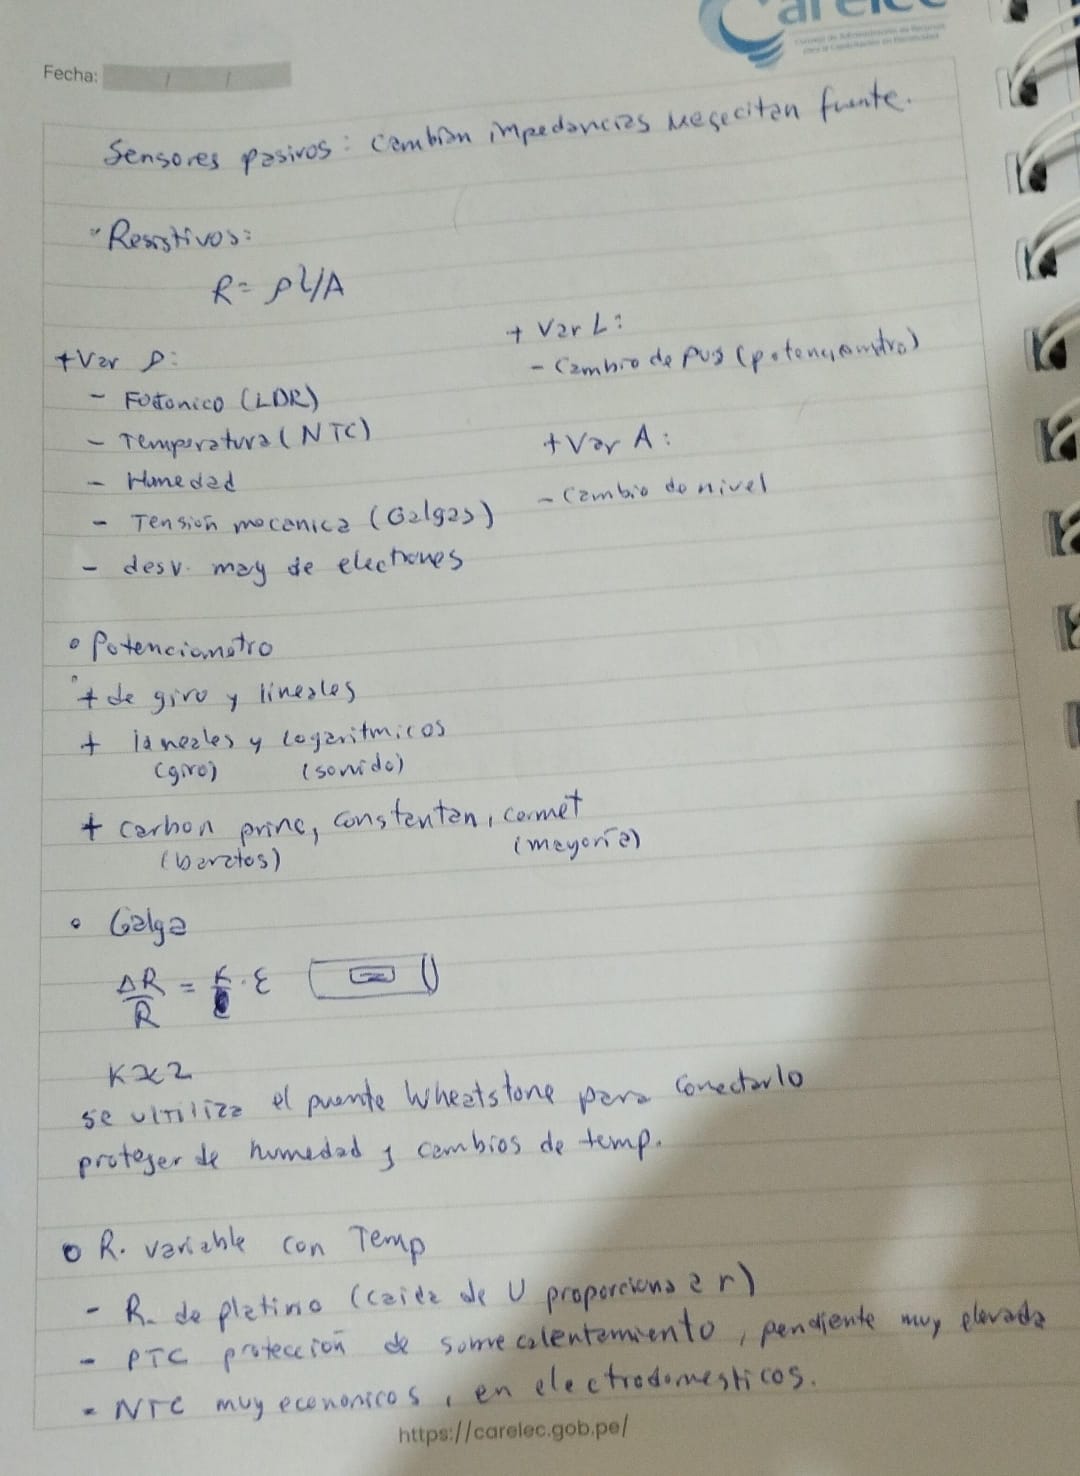 Carelec
Fecha: / /
Sensores pasivos: cambian impedancias nececitan fuente.
Resistivos:
R= ρl/A
+ Var ρ:
- Fotonico (LDR)
- Temperatura (NTC)
- Humedad
- Tensión mecanica (Galgas)
- desv. mag de electrones
+ Var L:
- Cambio de pos (potenciometro)
+ Var A:
- Cambio de nivel
• Potenciometro
+ de giro y lineales
+ lineales y logaritmicos
(giro) (sonido)
+ carbon princ, constantan, cermet
(baratos) (mayoría)
• Galga
ΔR/R = K · ε
K≈2
se ultiliza el puente Wheatstone para conectarlo
proteger de humedad y cambios de temp.
• R. variable con Temp
- R. de platino (caida de U proporciona a r)
- PTC protección de sobrecalentamiento, pendiente muy elevada
- NTC muy economicos, en electrodomesticos.
https://carelec.gob.pe/